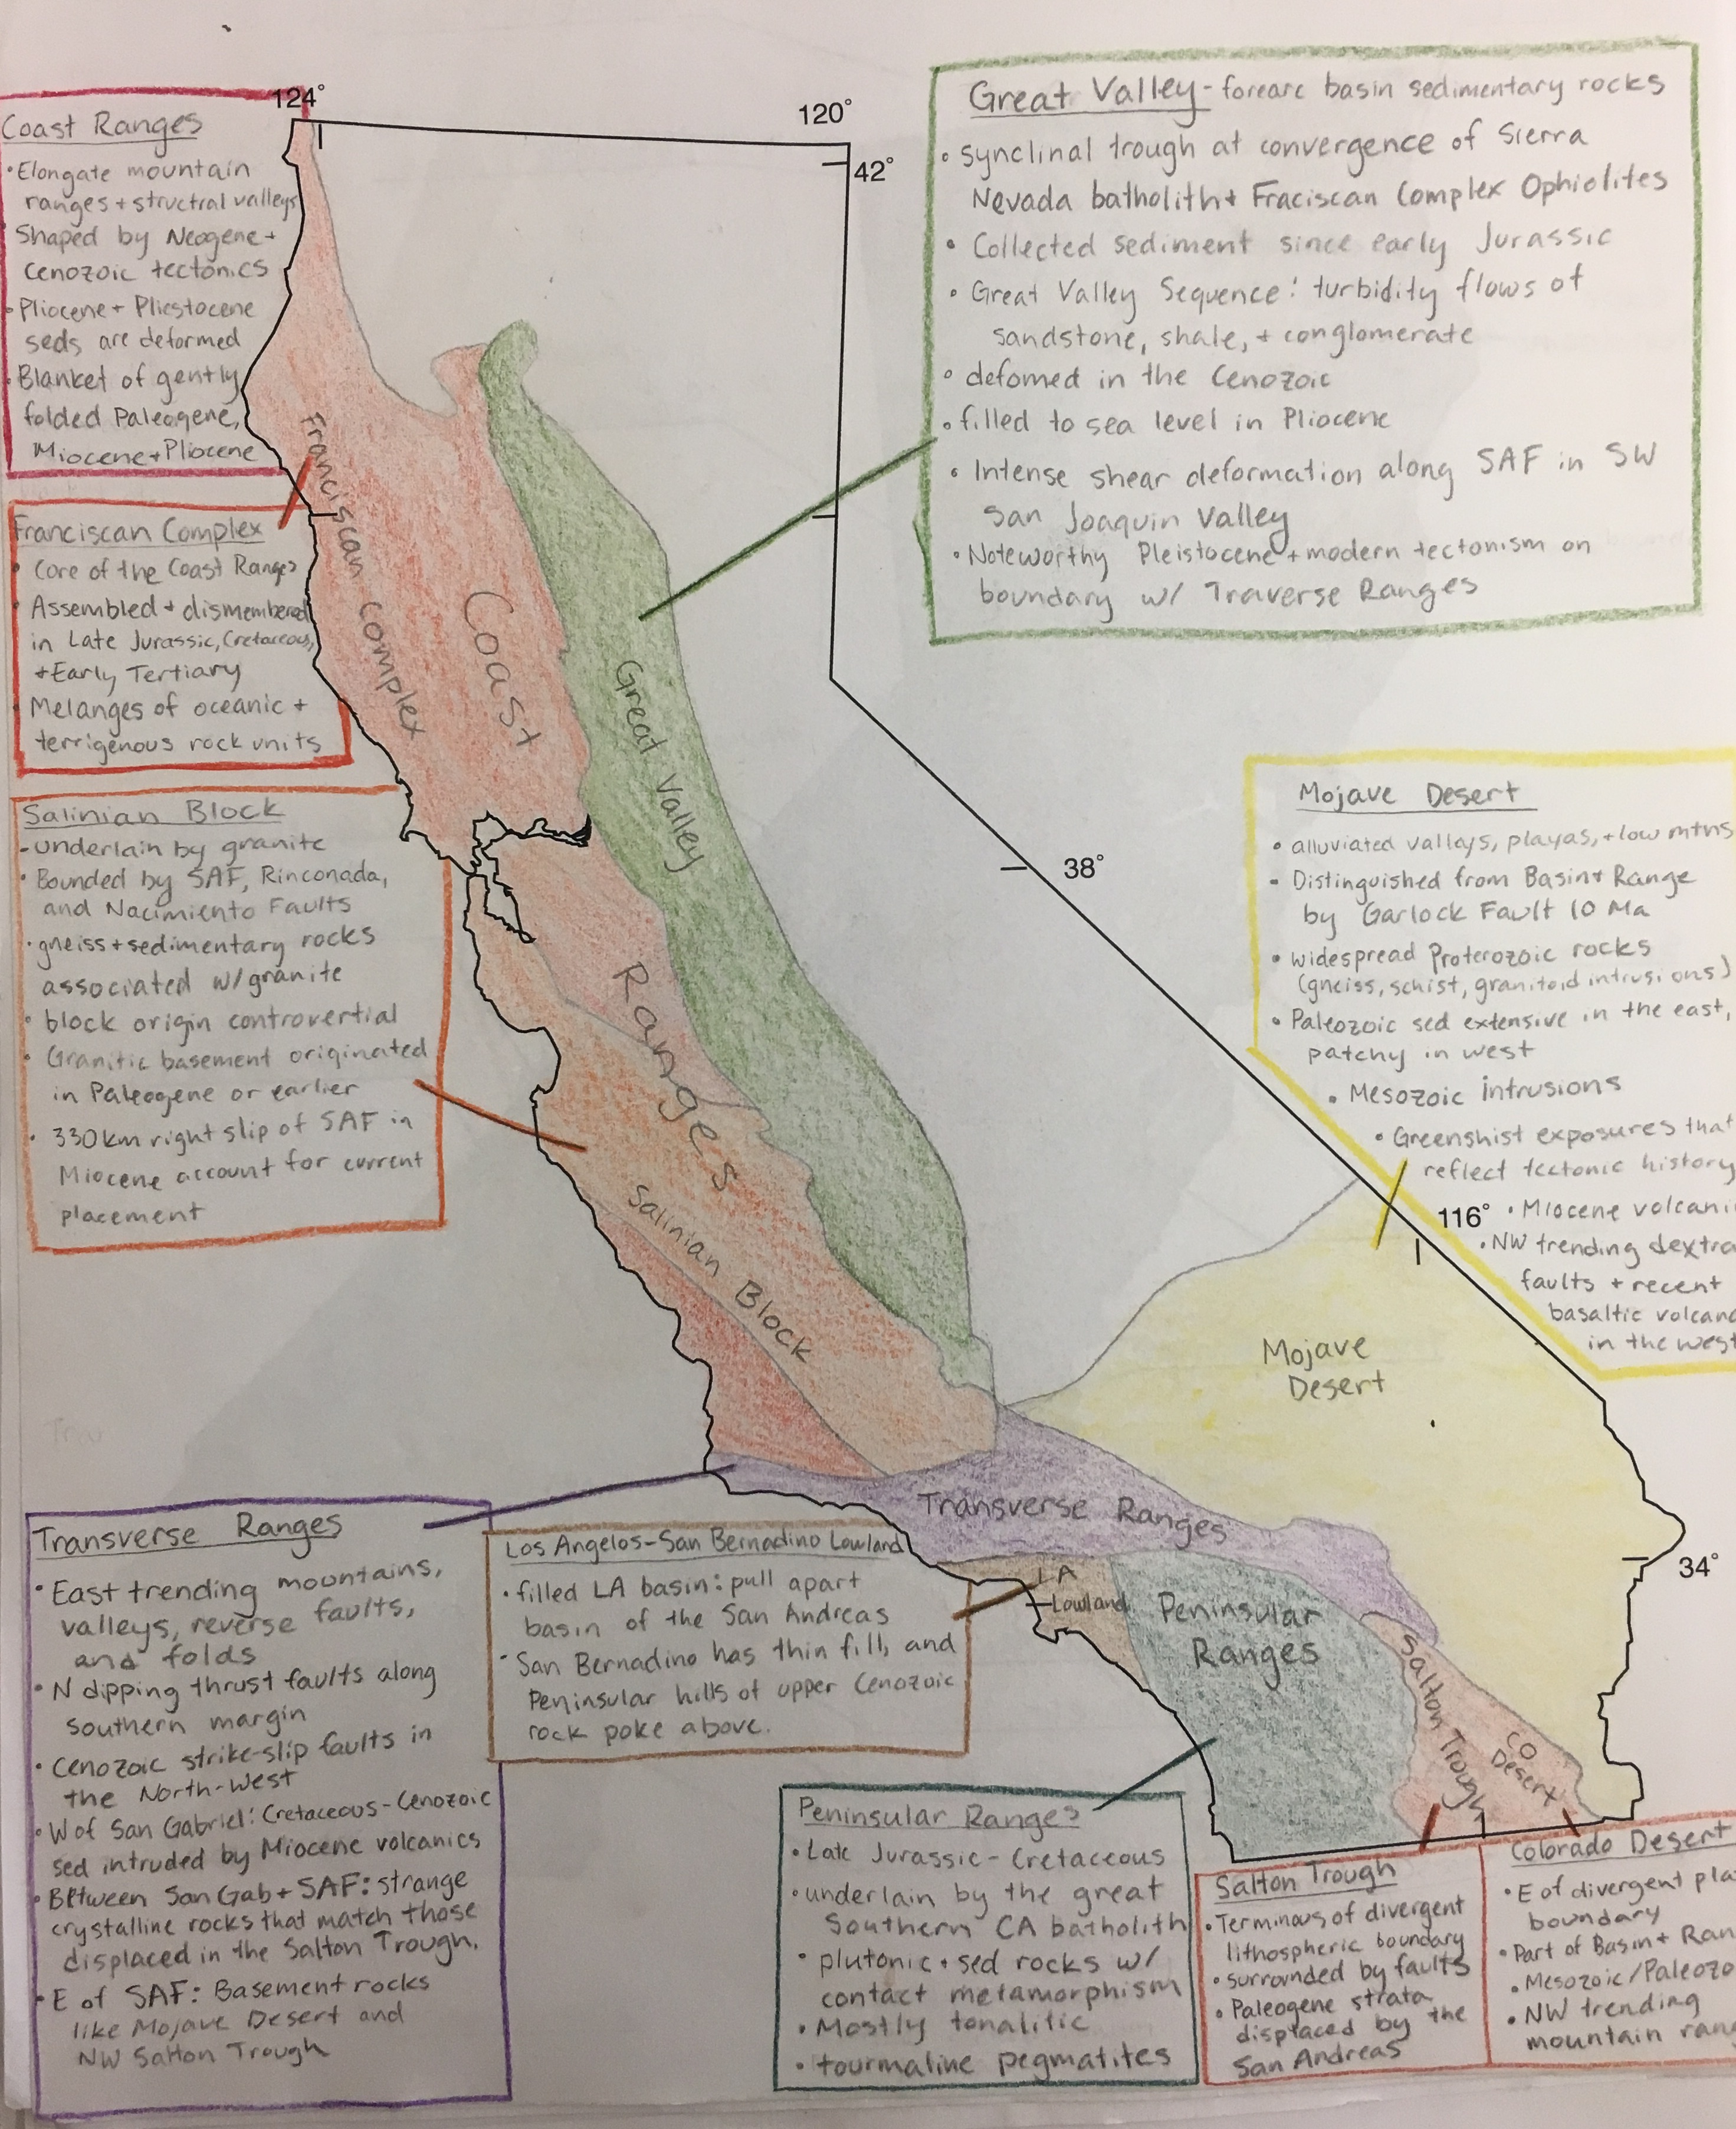 124°
120°
42°
38°
116°
34°
Coast Ranges
• Elongate mountain
ranges + structral valleys
Shaped by Neogene +
Cenozoic tectonics
• Pliocene + Pliestocene
seds are deformed
• Blanket of gently
folded Paleogene,
Miocene + Pliocene
Franciscan Complex
• Core of the Coast Ranges
• Assembled + dismembered
in Late Jurassic, Cretaceous,
+ Early Tertiary
• Melanges of oceanic +
terrigenous rock units
Salinian Block
- underlain by granite
• Bounded by SAF, Rinconada,
and Nacimiento Faults
• gneiss + sedimentary rocks
associated w/ granite
• block origin controvertial
• Granitic basement originated
in Paleogene or earlier
• 330 km right slip of SAF in
Miocene account for current
placement
Great Valley - forearc basin sedimentary rocks
• synclinal trough at convergence of Sierra
Nevada batholith + Fraciscan Complex Ophiolites
• Collected sediment since early Jurassic
• Great Valley Sequence: turbidity flows of
sandstone, shale, + conglomerate
• defomed in the Cenozoic
• filled to sea level in Pliocene
• Intense shear deformation along SAF in SW
San Joaquin Valley
• Noteworthy Pleistocene + modern tectonism on
boundary w/ Traverse Ranges
Mojave Desert
• alluviated valleys, playas, + low mtns
- Distinguished from Basin + Range
by Garlock Fault 10 Ma
• widespread Proterozoic rocks
(gneiss, schist, granitoid intrusions)
• Paleozoic sed extensive in the east,
patchy in west
• Mesozoic intrusions
• Greenshist exposures that
reflect tectonic history
• Miocene volcani
• NW trending dextra
faults + recent
basaltic volcano
in the west
Franciscan Complex
Coast
Ranges
Great Valley
Salinian Block
Mojave
Desert
Transverse Ranges
LA
Lowland
Peninsular
Ranges
Salton Trough
CO
Desert
Transverse Ranges
• East trending mountains,
valleys, reverse faults,
and folds
• N dipping thrust faults along
southern margin
• Cenozoic strike-slip faults in
the North-West
• W of San Gabriel: Cretaceous-Cenozoic
sed intruded by Miocene volcanics
• Between San Gab + SAF: strange
crystalline rocks that match those
displaced in the Salton Trough.
• E of SAF: Basement rocks
like Mojave Desert and
NW Salton Trough
Los Angelos-San Bernadino Lowland
• filled LA basin: pull apart
basin of the San Andreas
• San Bernadino has thin fill, and
Peninsular hills of upper Cenozoic
rock poke above.
Peninsular Ranges
• Late Jurassic - Cretaceous
• underlain by the great
Southern CA batholith
• plutonic + sed rocks w/
contact metamorphism
• Mostly tonalitic
• tourmaline pegmatites
Salton Trough
• Terminous of divergent
lithospheric boundary
• surrounded by faults
• Paleogene strata
displaced by the
San Andreas
Colorado Desert
• E of divergent pla
boundary
• Part of Basin + Ran
• Mesozoic/Paleozo
• NW trending
mountain rang